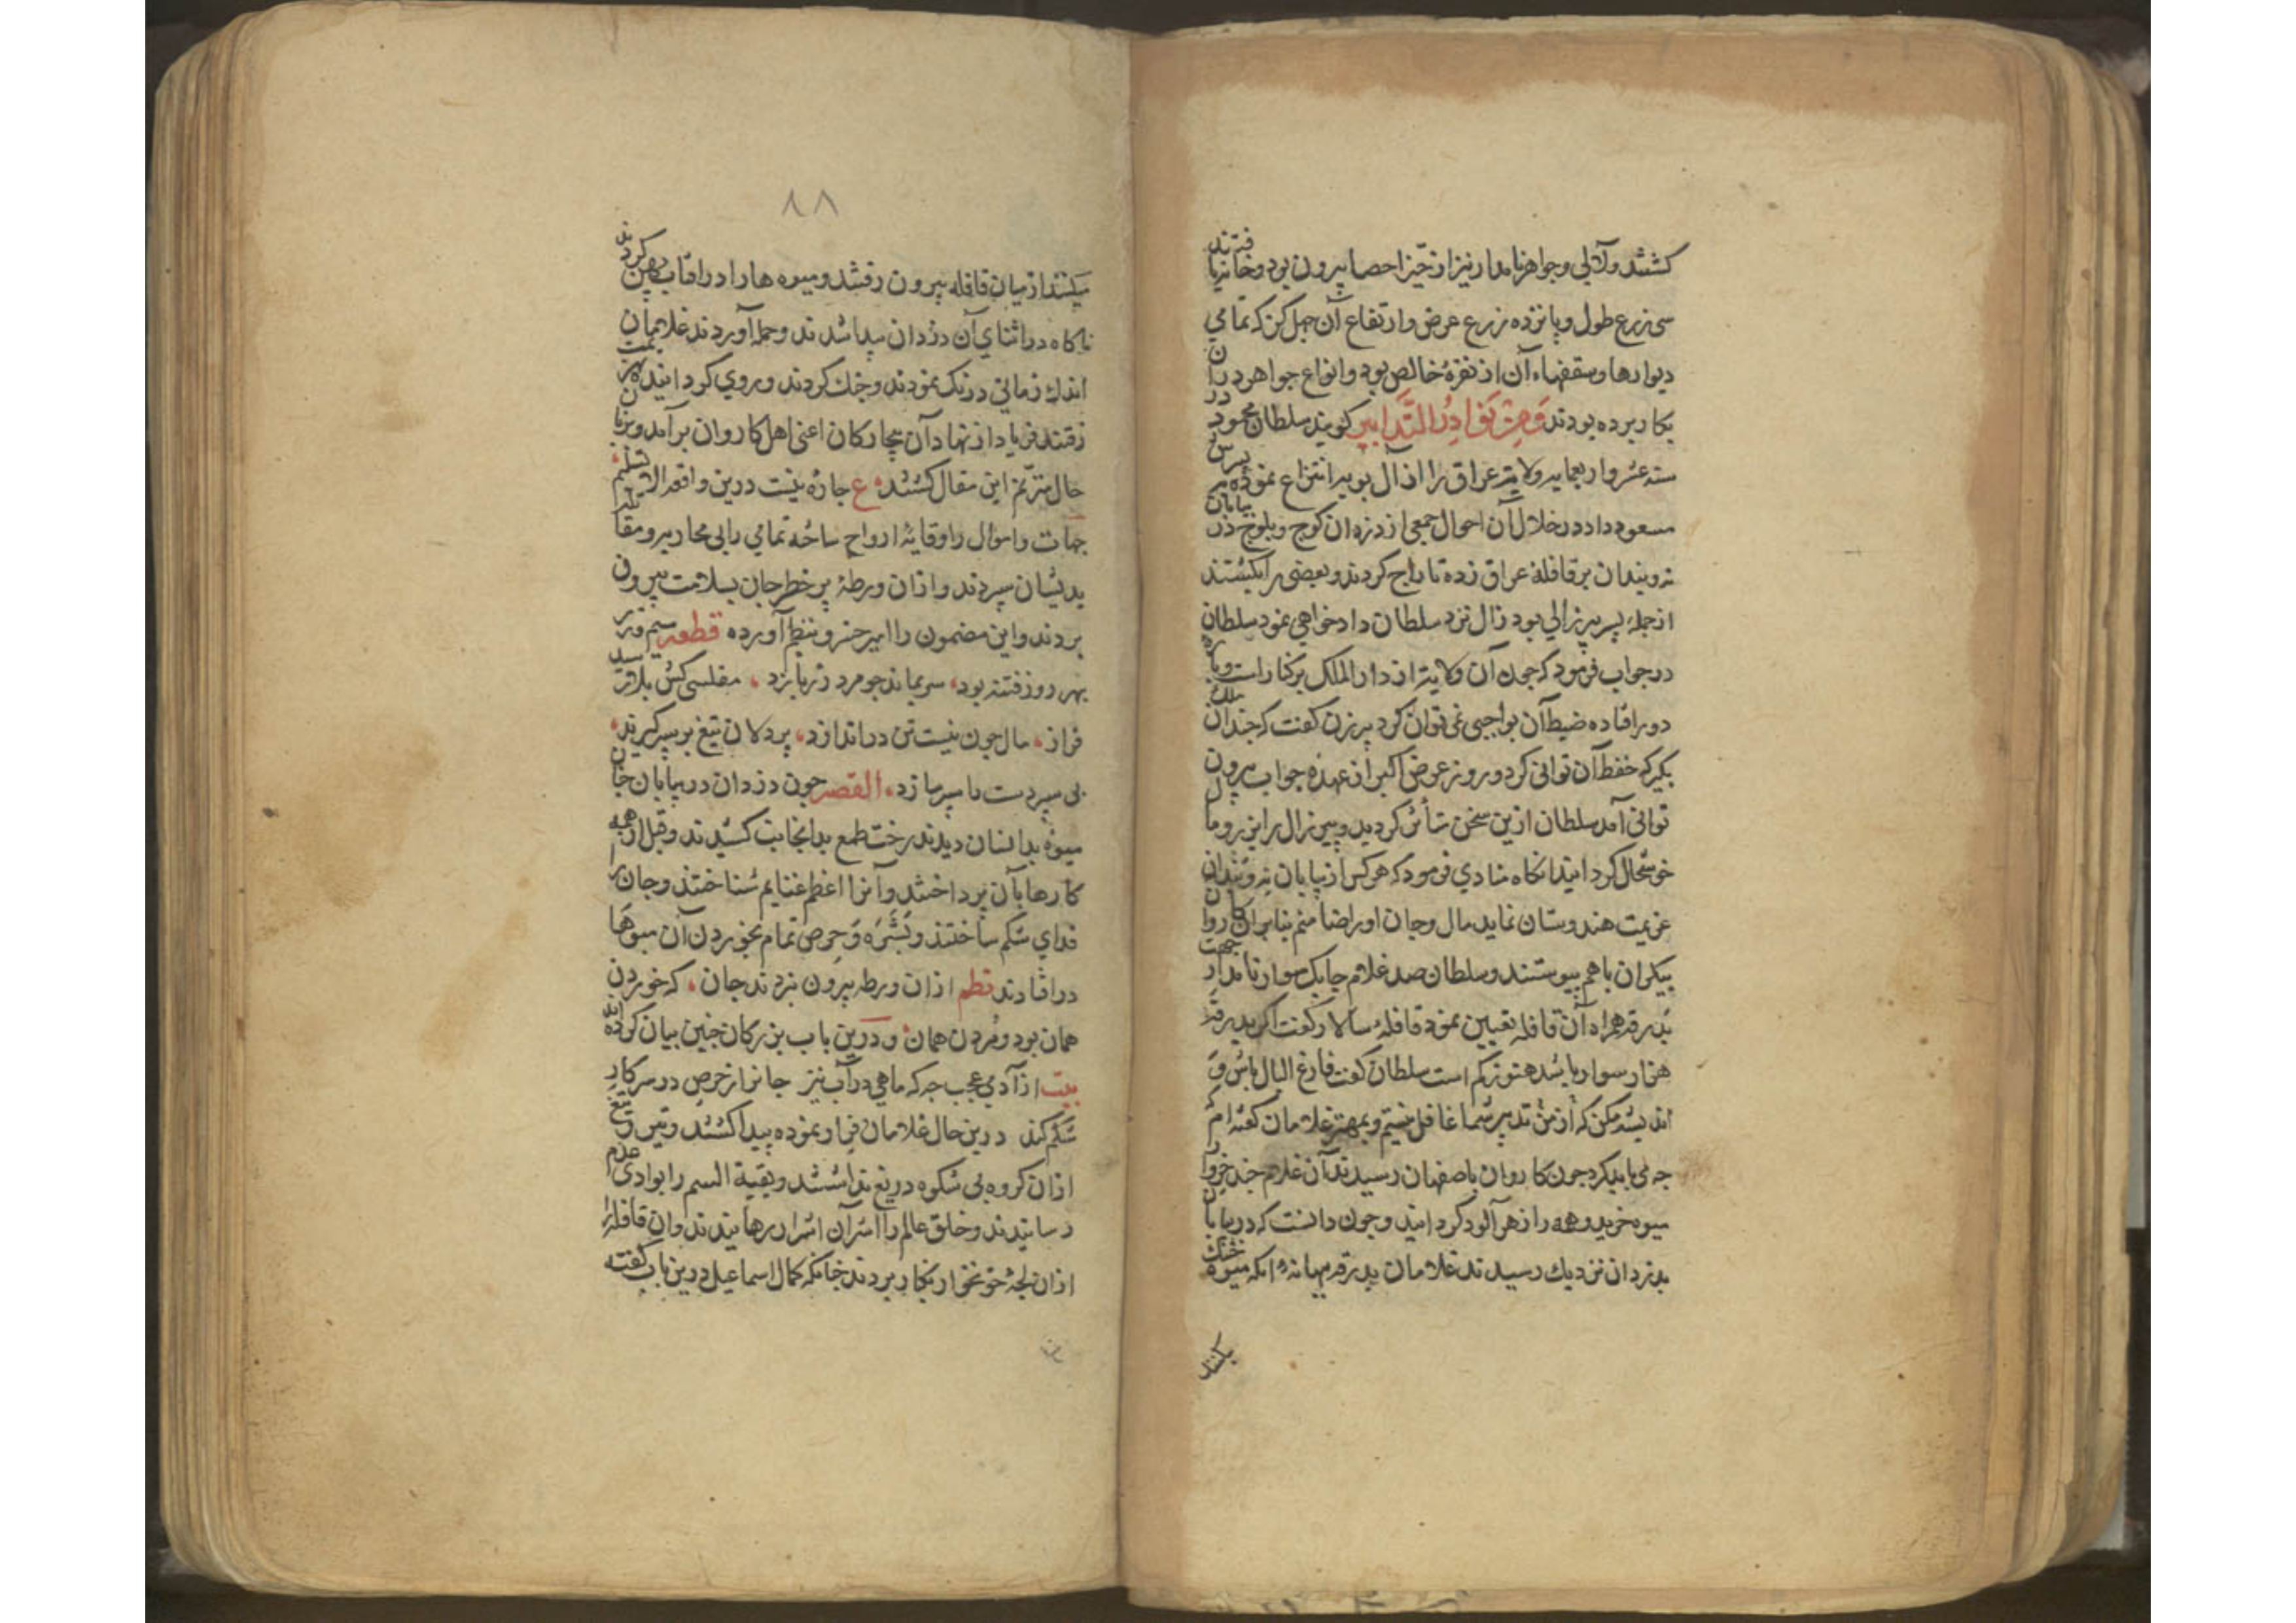 کشتند ولآلی وجواهر نامدار نیز از حیز احصا بیرون بود وخانه یافتند
سی زرع طول و پانزده زرع عرض وارتفاع آن چهل گز که تمامی
دیوارها وسقفهاء آن از نقرهٔ خالص بود وانواع جواهر در آن
بکار برده بودند وَمِنْ نَوَادِرُ التَّدَابیرِ کویند سلطان محمود در
سنه عشر واربعمایه ولایت عراق را از آل بویه انتزاع نموده به پسرش
مسعود داد در خلال آن احوال جمعی از دزدان کوچ وبلوچ در بیابان
بر قافلهٔ عراق زده تاراج کردند وبعضی را بکشتند
ازجمله پسر پیر زالی بود زال نزد سلطان دادخواهی نمود سلطان
در جواب فرمود که چون آن ولایت از دار الملک برکنار است وپاره
دور افتاده ضبط آن بواجبی نمی توان کرد پیر زن کفت که چندان ملک
بکیر که حفظ آن توانی کرد و روز عرض اکبر از عهدهٔ جواب بیرون
توانی آمد سلطان ازین سخن متأثر کردید وپیر زال را
خوشحال کردانید انکاه منادی فرمود که هرکس از بیابان
عزیمت هندوستان نماید مال وجان اورا ضامنم بنابران کاروان
بیکران باهم پیوستند وسلطان صد غلام چابک سوار نامدار جهت
بدرقه همراه آن قافله تعیین نمود قافلهٔ سالار کفت اکر بدرقه
هزار سوار باشد هنوز کم است سلطان کفت فارغ البال باش وَ
اندیشه مکن که از من تدبیر شما غافل نیستم وبمهتر غلامان کفته ام که
چه می باید کرد چون کاروان باصفهان رسیدند آن غلام چند خروار
میوه خرید وهمه را زهرآلود کردانید وچون دانست که در بیابان
بدزدان نزدیک رسیدند غلامان بدرقه ببهانهٔ انکه میوه خشک
بکنند
۸۸
میکنند از میان قافله بیرون رفتند ومیوه هارا در افتاب پهن کردند
ناکاه در اثنای آن دزدان پیدا شدند وحمله آوردند غلامان
اندک زمانی درنک نمودند وجنک کردند وروی کردانیده بهزیمت
رفتند فریاد از نهاد آن بیچارکان اعنی اهل کاروان برآمد وبزبان
حال مترنم این مقال کشتند ع چاره نیست درین واقعه الا تسلیم
جهات واموال را وقایهٔ ارواح ساخته تمامی را بی محاربه ومقاتله
بدیشان سپردند وازان ورطهٔ پر خطر جان بسلامت بیرون
بردند واین مضمون را امیر خسرو بنظم آورده قطعه سیم وزر
بهر دور فتنه بود، سر نماند چو مرد زر بازد، مفلسی کش بلا رسید
فراز، مال چون نیست تن در اندازد، پر دلان تیغ بر سپر کیرند،
بی سپر دست با سپر سازد، القصه چون دزدان در بیابان
میوه بدانسان دیدند رخت طمع بدانجانب کشیدند وقبل از همه
کارها بآن پرداختند وآنرا اعظم غنایم شناختند وجان را
فدای شکم ساختند وبَشَّرَه وَحِرص تمام بخوردن آن میوها
درافتادند نظم ازان ورطه بیرون نبردند جان، که خوردن
همان بود ومُردن همان ودرین باب بزرکان چنین بیان کرده اند
بیت از آدمی عجب چه که ماهی در آب نیز جانرا ز حرص در سر کار
شکم کند درین حال غلامان فرار نموده پیدا کشتند وتیر وتیغ
ازان کروه بی شکوه دریغ نداشتند وبقیة السیم را بوادی عدم
رسانیدند وخلق عالم را از شر آن اشرار برهانیدند وان قافله را
ازان لجهٔ خونخوار بکنار بردند چنانکه کمال اسماعیل درین باب کفته